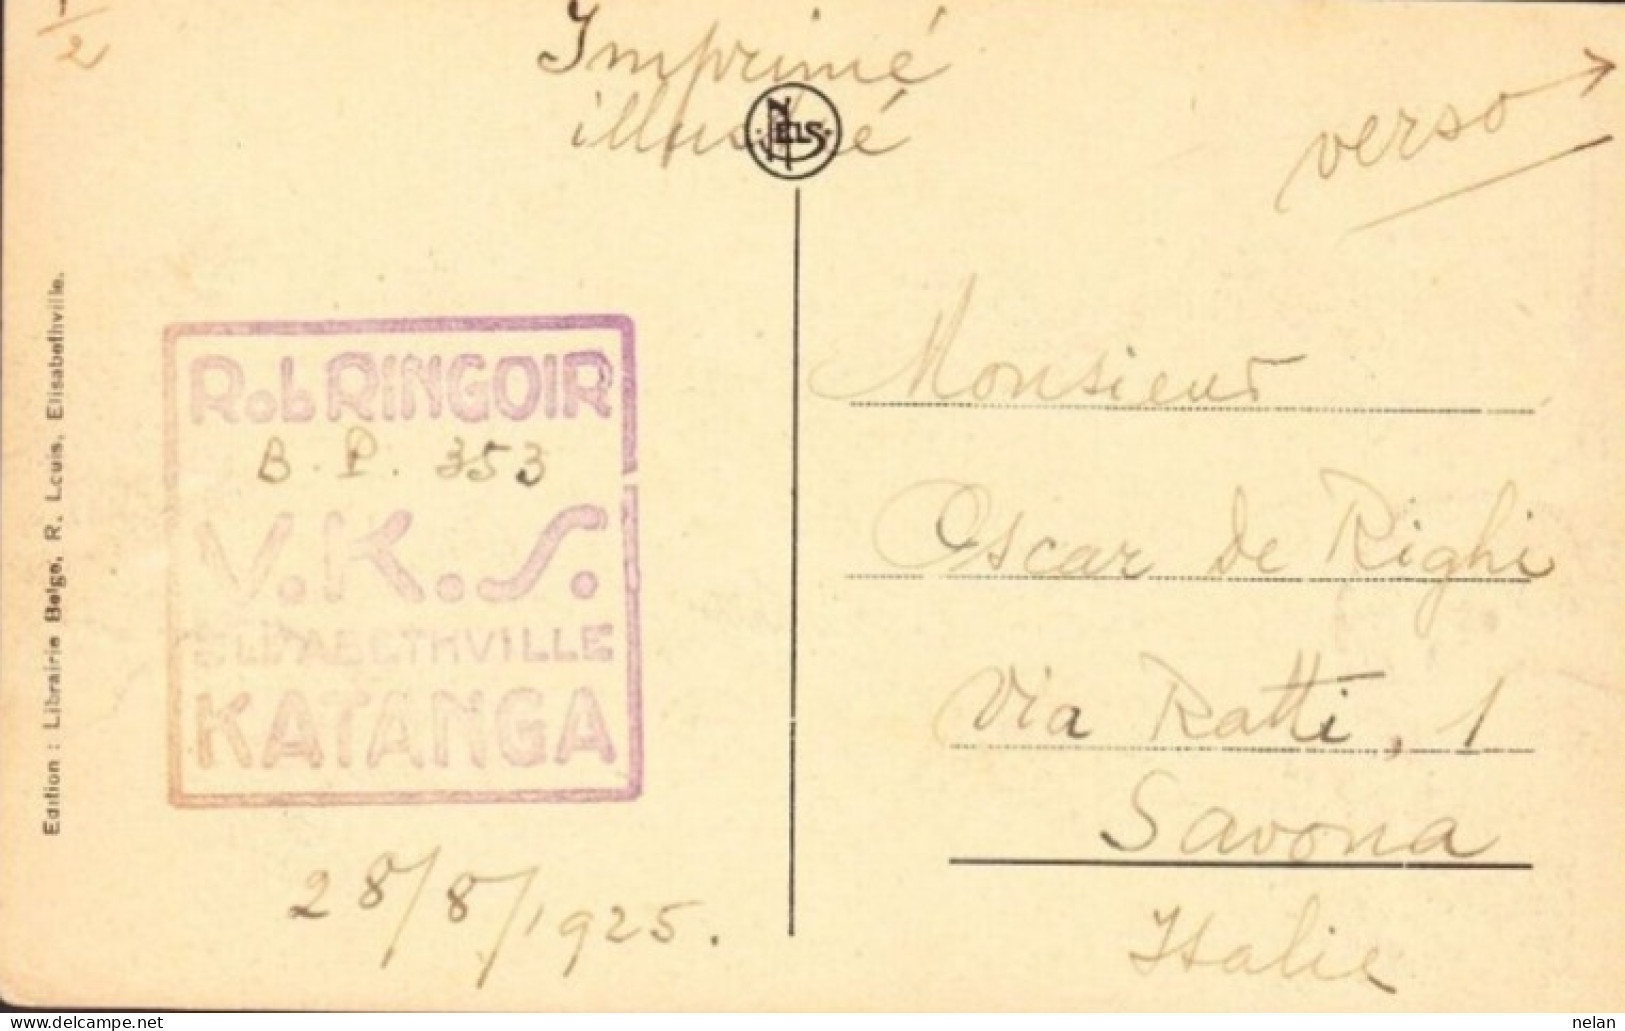 1/2
Imprimé
illustré
NELS
verso →
Edition : Librairie Belge, R. Louis, Elisabethville.
Rob RINGOIR
B. P. 353
V.K.S.
ELISABETHVILLE
KATANGA
28/8/1925.
Monsieur
Oscar de Righi
Via Ratti, 1
Savona
Italie
www.delcampe.net
nelan